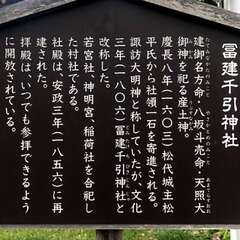 冨建千引神社
建御名方命・八坂斗売命・天照
御神を祀る産土神。
慶長八年（一六〇三）松代城主松
平氏から社領一石を寄進される。
諏訪大明神と称していたが、文化
三年（一八〇六）冨建千引神社と
改称した。
若宮社、神明宮、稲荷社を合祀し
た村社である。
社殿は、安政三年（一八五六）に再
建された。
拝殿は、いつでも参拝できるよう
に開放されている。